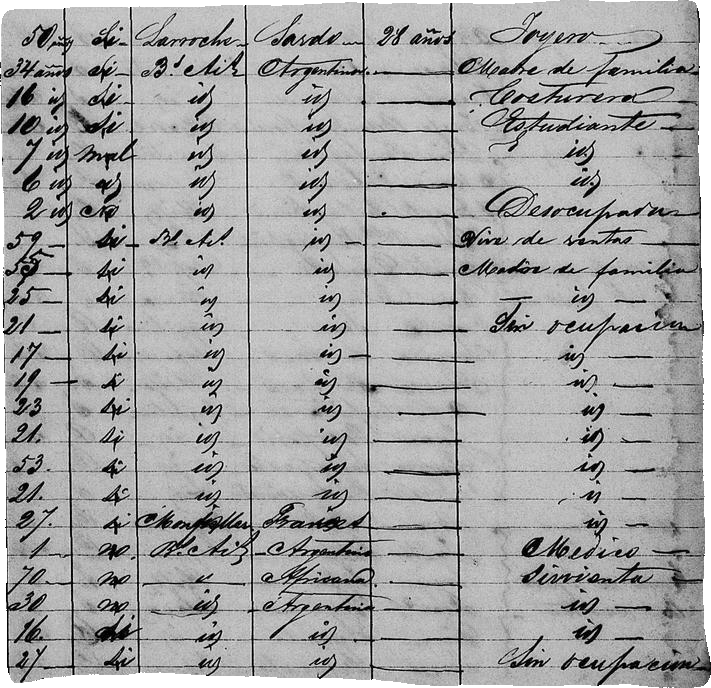 50 años Si Larroche Sardo 28 años Joyero
34 años Si Bs Ais Argentina Madre de familia
16 id Si id id Costurera
10 id Si id id Estudiante
7 id mal id id id
6 id id id id id
2 id No id id Desocupada
59 si Bs As id Vive de rentas
55 si id id Madre de familia
25 si id id id
21 si id id Sin ocupacion
17 si id id id
19 si id id id
23 si id id id
21. si id id id
53. si id id id
21. si id id id
27. si Francés id
1 no Bs Ais Argentino Medico
70 no Africana Sirvienta
30 no id Argentina id
16. si id id id
27 si id id Sin ocupacion